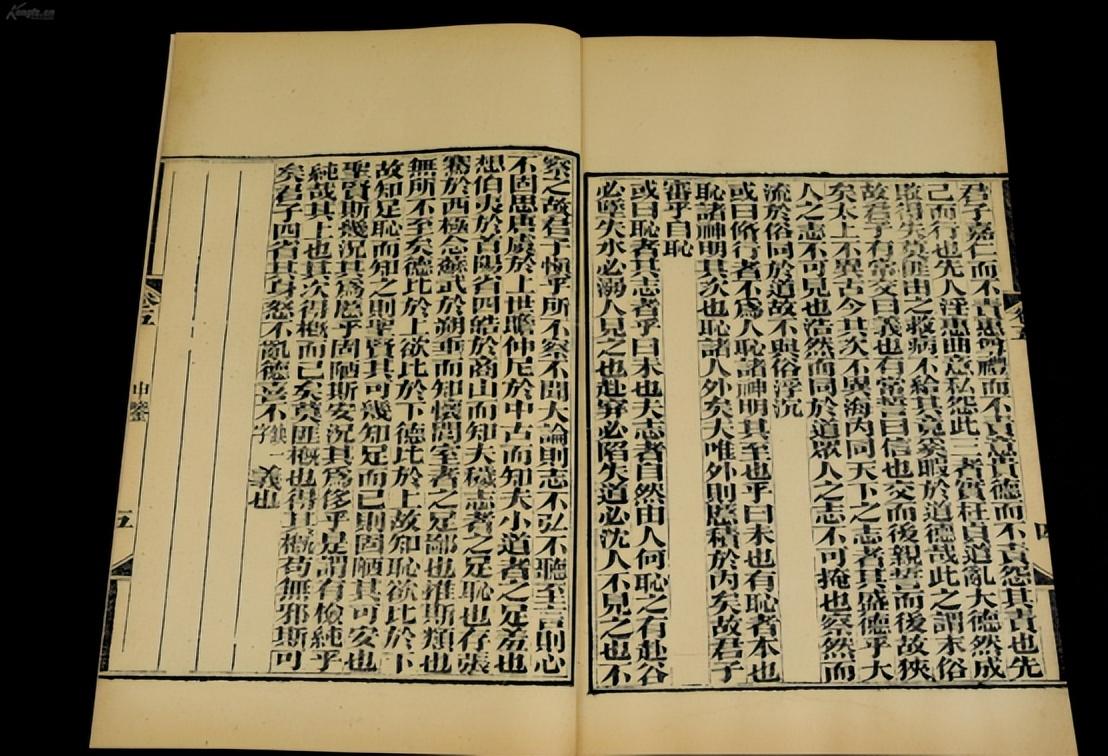 君子嘉仁而不責惠尊禮而不責意貴德而不責怨其責也先
己而行也先人淫惠曲意私怨此三者實枉貞道亂大德然成
敗得失莫匪由之救病不給其竟奚暇於道德哉此之謂末俗
故君子有常交曰義也有常誓曰信也交而後親誓而後故狹
矣太上不異古今其次不異海內同天下之志者其盛德乎大
人之志不可見也浩然而同於道眾人之志不可掩也察然而
流於俗同於道故不與俗浮沉
或曰脩行者不爲人恥諸神明其至也乎曰未也有恥者本也
恥諸神明其次也恥諸人外矣夫唯外則慝積於內矣故君子
審乎自恥
或曰恥者其志者乎曰未也夫志者自然由人何恥之有赴谷
必墜失水必溺人見之也赴穽必陷失道必沈人不見之也不
四
察之故君子愼乎所不察不聞大論則志不弘不聽至言則心
不固思唐虞於上世瞻仲尼於中古而知夫小道者之足羞也
想伯夷於首陽省四皓於商山而知夫穢志者之足恥也存張
騫於西極念蘇武於朔垂而知懷閭室者之足鄙也推斯類也
無所不至矣德比於上欲比於下德比於上故知恥欲比於下
故知足恥而知之則聖賢其可幾知足而已則固陋其可安也
聖賢斯幾況其爲慝乎固陋斯安況其爲侈乎是謂有檢純乎
純哉其上也其次得概而已矣莫匪概也得其概苟無邪斯可
矣君子四省其身怒不亂德喜不缺一字義也
卷五
申鑒
五